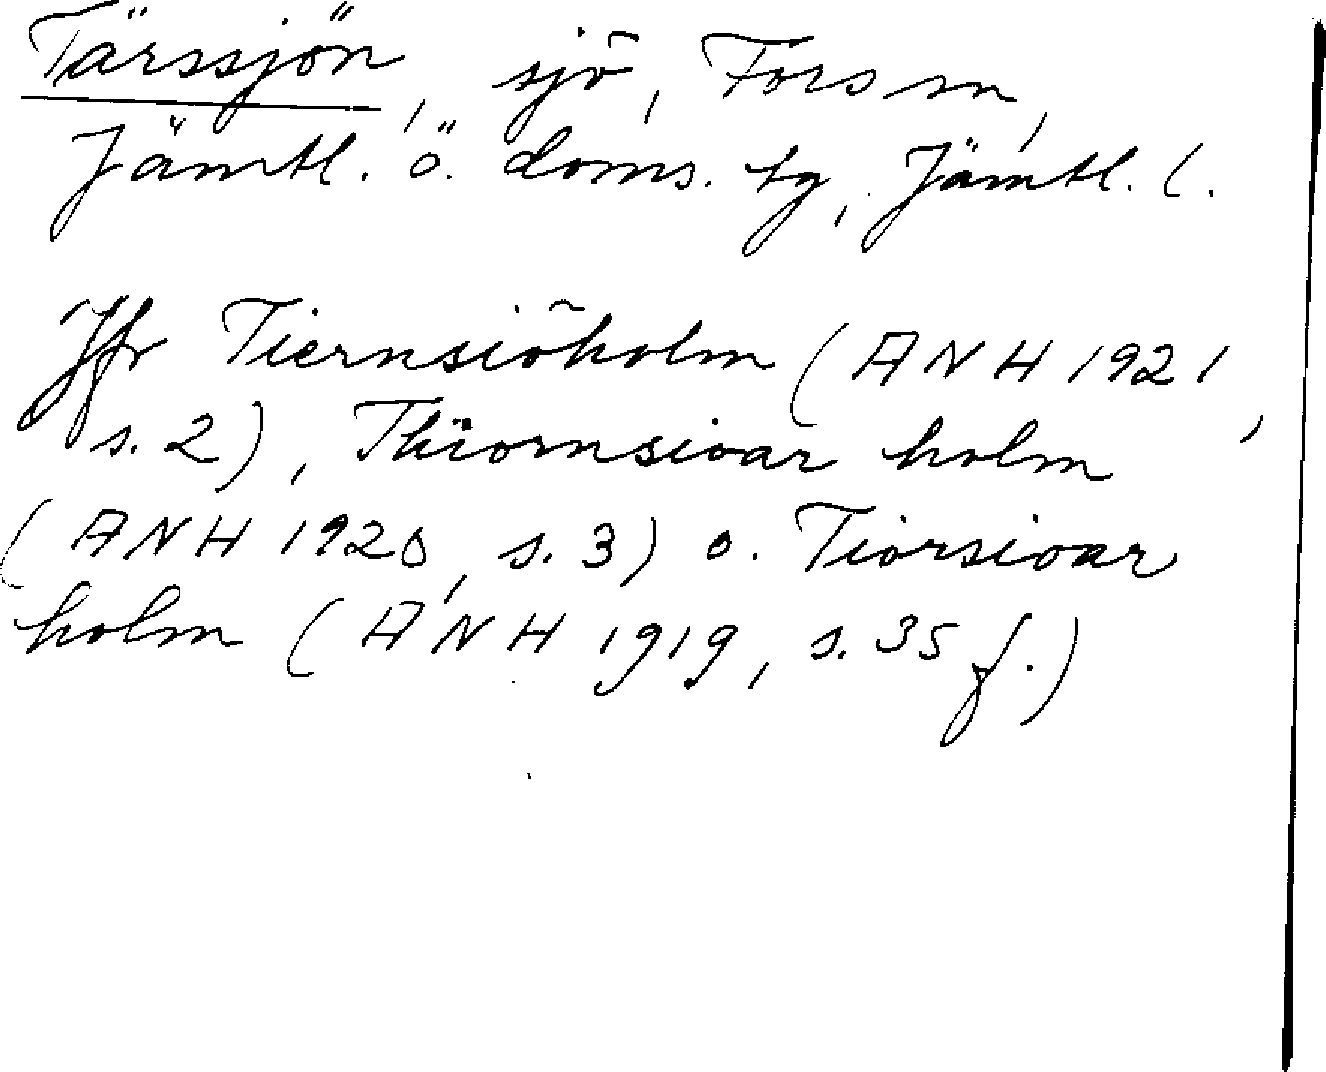 Tärssjön, sjö, Fors sn,
Jämtl. ö. doms. tg, Jämtl. l.
Jfr Tiernsiöholm (ANH 1921,
s. 2), Thiornsioar holm
(ANH 1920, s. 3) o. Tiorsioar
holm (ANH 1919, s. 35 f.)